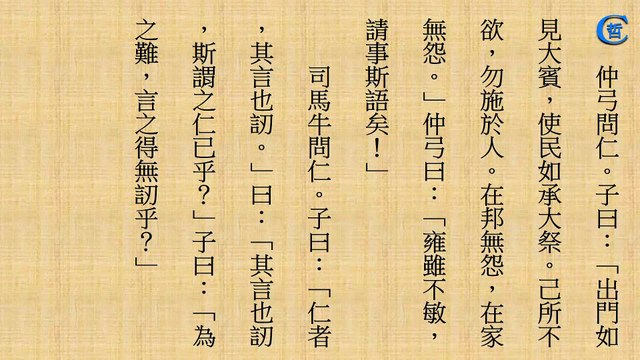 仲弓問仁。子曰：「出門如
見大賓，使民如承大祭。己所不
欲，勿施於人。在邦無怨，在家
無怨。」仲弓曰：「雍雖不敏，
請事斯語矣！」
司馬牛問仁。子曰：「仁者
，其言也訒。」曰：「其言也訒
，斯謂之仁已乎？」子曰：「為
之難，言之得無訒乎？」
哲